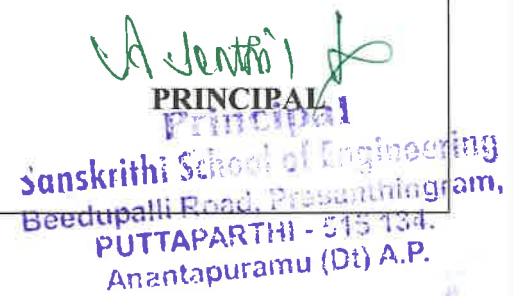 A Senthil
PRINCIPAL
Principal
Sanskrithi School of Engineering
Beedupalli Road, Prasanthingram,
PUTTAPARTHI - 515 134.
Anantapuramu (Dt) A.P.